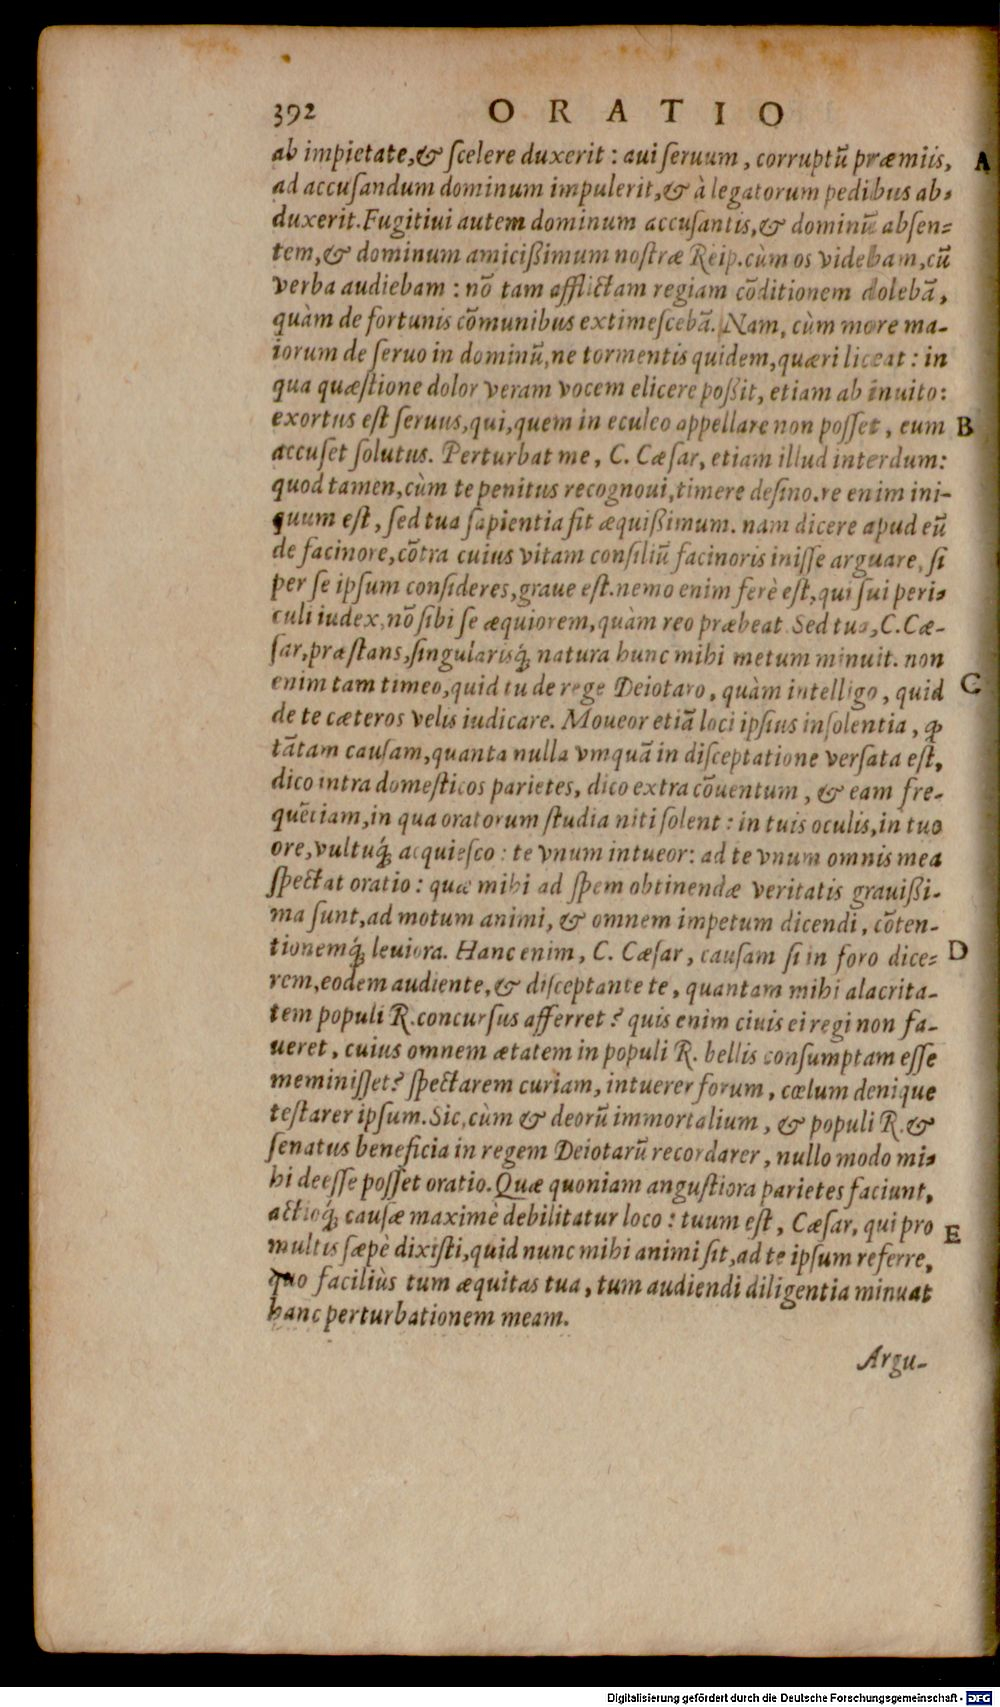 392 ORATIO
ab impietate, & ſcelere duxerit : aui ſeruum, corruptũ præmiis, A
ad accuſandum dominum impulerit, & à legatorum pedibus ab-
duxerit. Fugitiui autem dominum accuſantis, & dominũ abſen-
tem, & dominum amicißimum noſtræ Reip. cùm os videbam, cũ
verba audiebam : nõ tam afflictam regiam cõditionem dolebã,
quàm de fortunis cõmunibus extimeſcebã. Nam, cùm more ma-
iorum de ſeruo in dominũ, ne tormentis quidem, quæri liceat : in
qua quæſtione dolor veram vocem elicere poßit, etiam ab inuito:
exortus eſt ſeruus, qui, quem in eculeo appellare non poſſet, eum B
accuſet ſolutus. Perturbat me, C. Cæſar, etiam illud interdum:
quod tamen, cùm te penitus recognoui, timere deſino. re enim ini-
quum eſt, ſed tua ſapientia fit æquißimum. nam dicere apud eũ
de facinore, cõtra cuius vitam conſiliũ facinoris iniſſe arguare, ſi
per ſe ipſum conſideres, graue eſt. nemo enim ferè eſt, qui ſui peri-
culi iudex, nõ ſibi ſe æquiorem, quàm reo præbeat. Sed tua, C. Cæ-
ſar, præſtans, ſingularisq́; natura hunc mihi metum minuit. non
enim tam timeo, quid tu de rege Deiotaro, quàm intelligo, quid C
de te cæteros velis iudicare. Moueor etiã loci ipſius inſolentia, ꝙ
tãtam cauſam, quanta nulla vmquã in diſceptatione verſata eſt,
dico intra domeſticos parietes, dico extra cõuentum, & eam fre-
quẽtiam, in qua oratorum ſtudia niti ſolent : in tuis oculis, in tuo
ore, vultuq́; acquieſco : te vnum intueor: ad te vnum omnis mea
ſpectat oratio : quæ mihi ad ſpem obtinendæ veritatis grauißi-
ma ſunt, ad motum animi, & omnem impetum dicendi, cõten-
tionemq́; leuiora. Hanc enim, C. Cæſar, cauſam ſi in foro dice- D
rem, eodem audiente, & diſceptante te, quantam mihi alacrita-
tem populi R. concurſus afferret? quis enim ciuis ei regi non fa-
ueret, cuius omnem ætatem in populi R. bellis conſumptam eſſe
meminiſſet? ſpectarem curiam, intuerer forum, cœlum denique
teſtarer ipſum. Sic, cùm & deorũ immortalium, & populi R. &
ſenatus beneficia in regem Deiotarũ recordarer, nullo modo mi-
hi deeſſe poſſet oratio. Quæ quoniam anguſtiora parietes faciunt,
actioq́; cauſæ maximè debilitatur loco : tuum eſt, Cæſar, qui pro E
multis ſæpè dixiſti, quid nunc mihi animi ſit, ad te ipſum referre,
quo faciliùs tum æquitas tua, tum audiendi diligentia minuat
hanc perturbationem meam.
Argu-
Digitalisierung gefördert durch die Deutsche Forschungsgemeinschaft - DFG